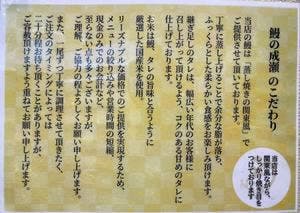 鰻の成瀬 のこだわり
当店の鰻は「蒸し焼きの関東風」で
ご提供させて頂いています。
丁寧に蒸し上げることで余分な脂が落ち、
ふっくらとした柔らかい食感をお楽しみ頂けます。
継ぎ足しのタレは、幅広い年代のお客様に
召し上がって頂けるよう、コクのある甘めのタレに
仕上げております。
お米は鰻、タレの旨味と合うように
厳選した国産米を使用。
リーズナブルな価格でのご提供を実現するため、
メニューの絞り込みや営業時間の短縮、
現金のみでのお会計など、
至らない点も多々ございますが、
ご理解、ご協力の程よろしくお願い申し上げます。
また、一尾ずつ丁寧に調理させて頂きたく、
ご注文のタイミングによっては
二十分程お待ち頂くことがありますが、
ご容赦頂けますよう重ねてお願い申し上げます。
当店は
関東風ながら、
しっかり焼き目を
つけております